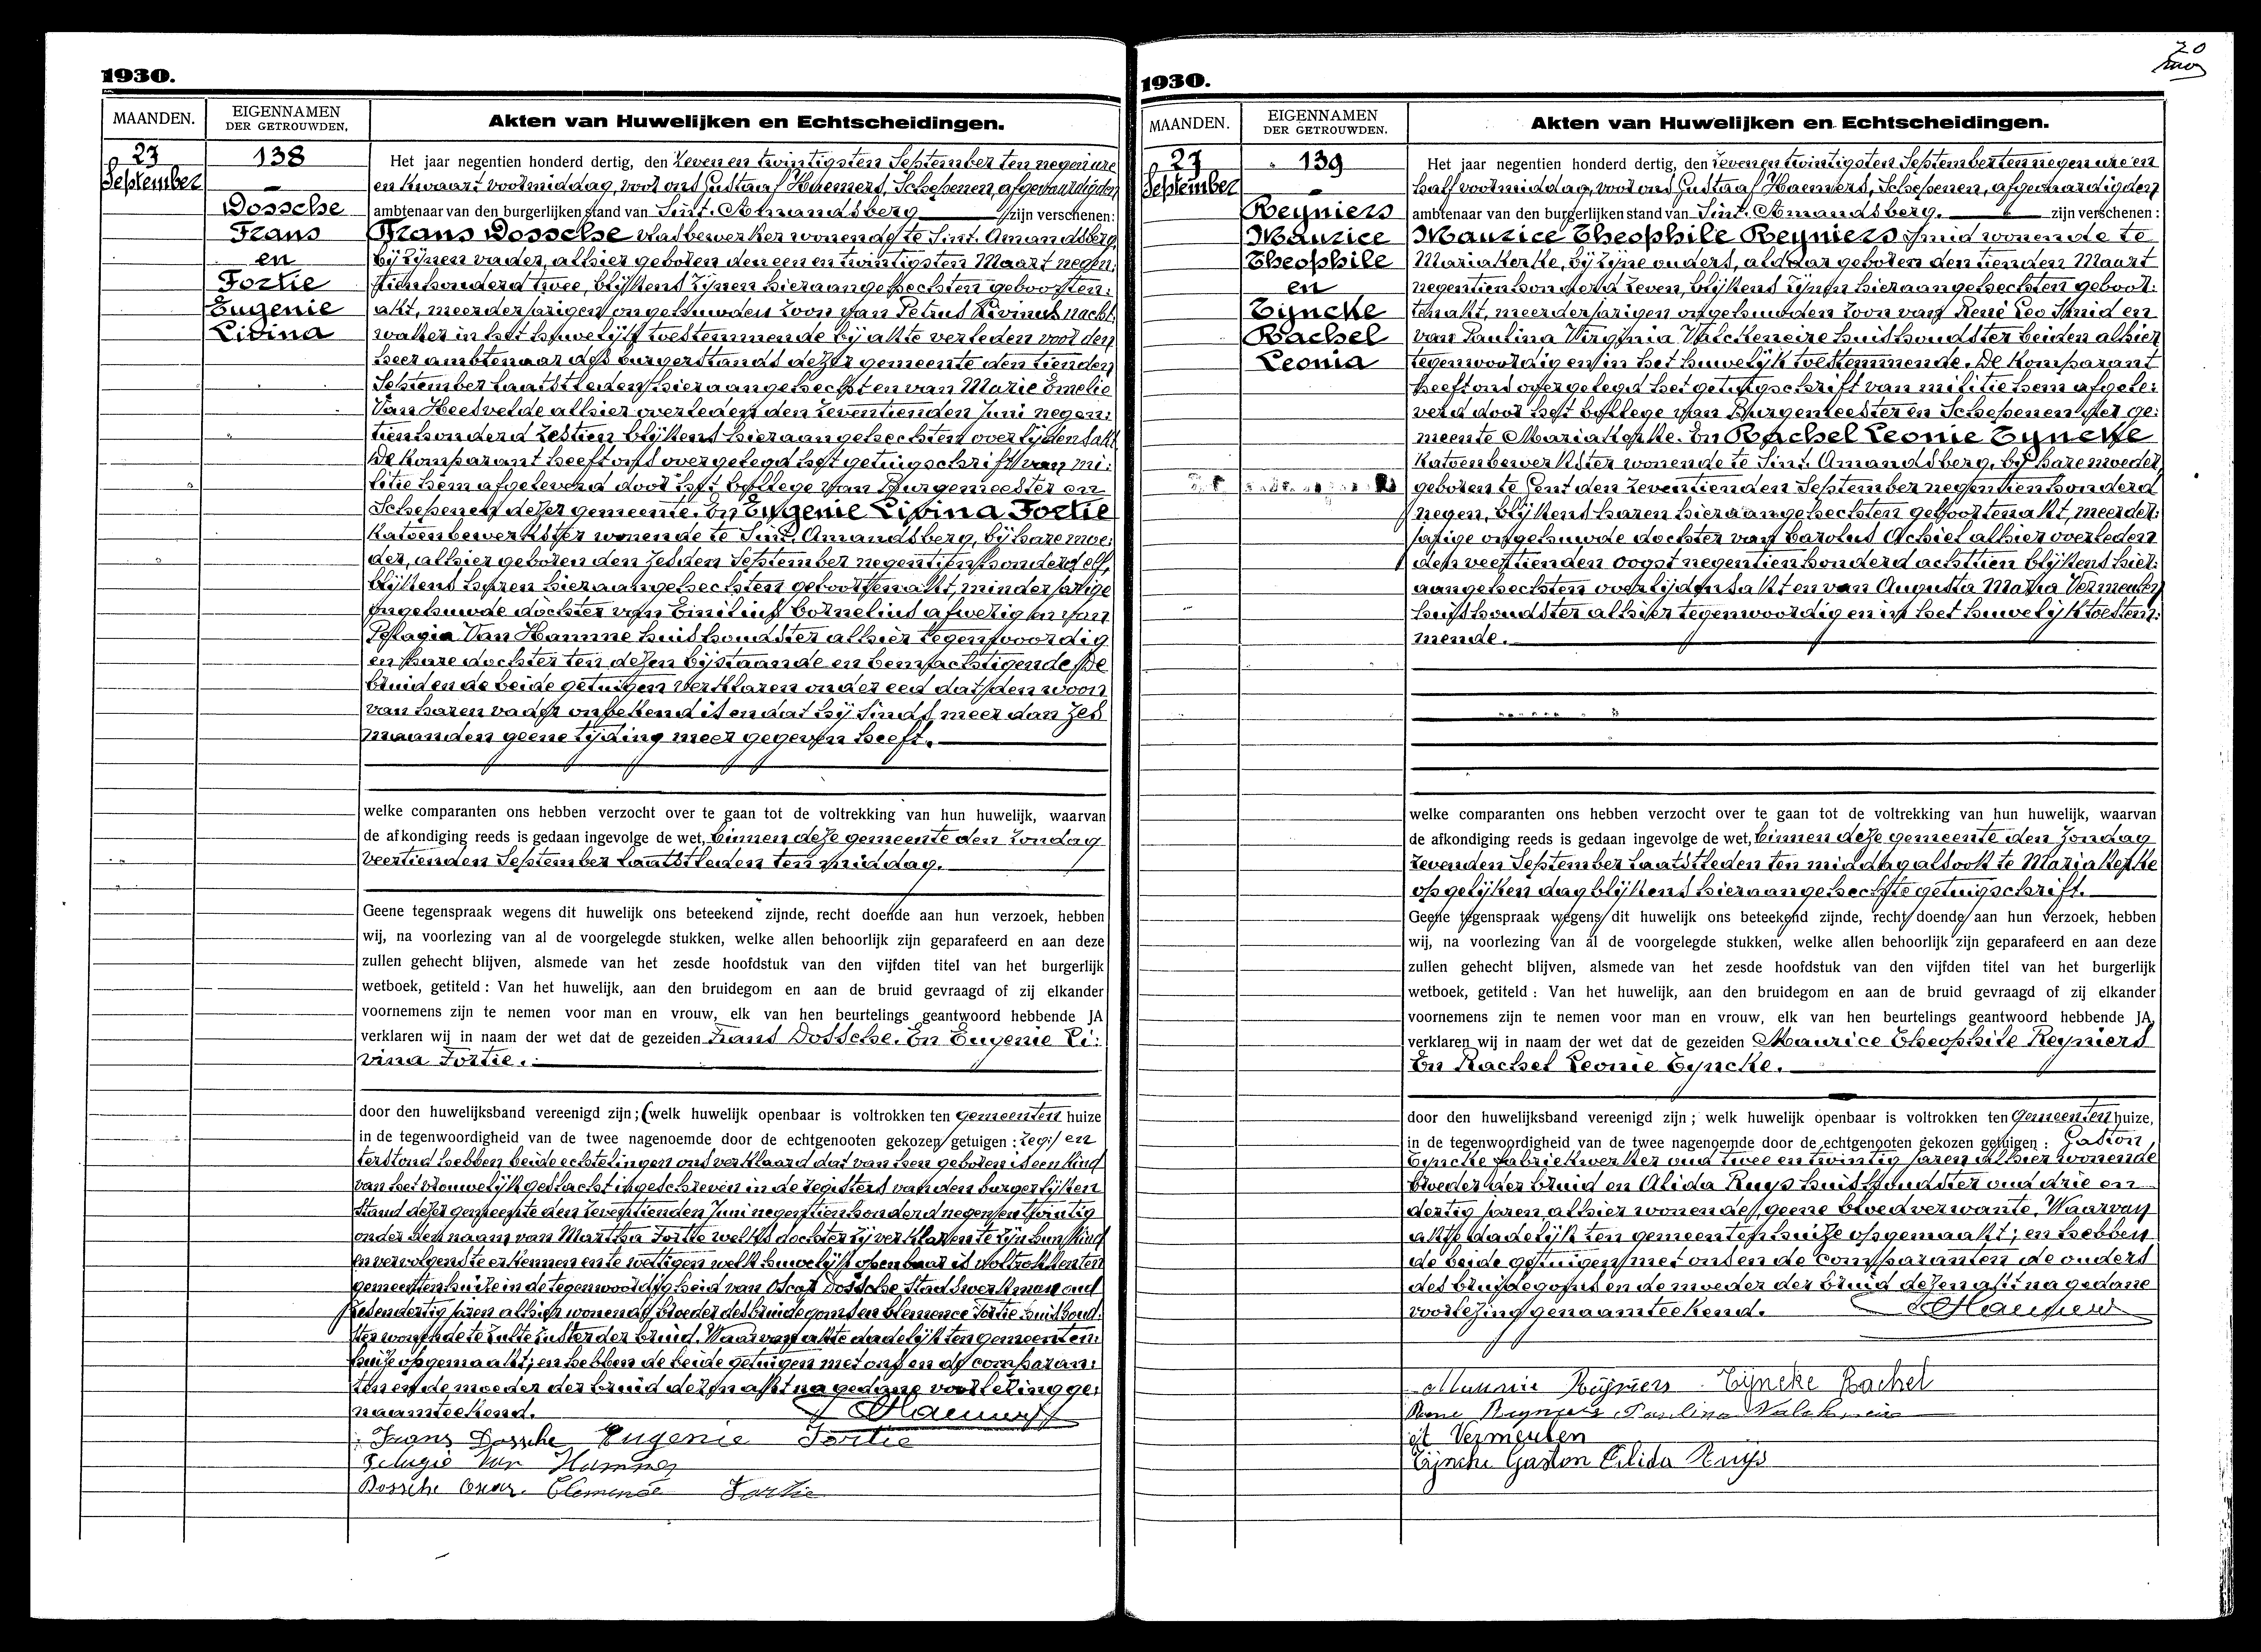 1930.
MAANDEN.
EIGENNAMEN
DER GETROUWDEN.
Akten van Huwelijken en Echtscheidingen.
27
September
138
Dossche
Frans
en
Fortie
Eugenie
Livina
Het jaar negentien honderd dertig, den zevenen twintigsten September ten negen ure
en kwaart voormiddag, voor ons Gustaaf Haemers, Schepenen, afgevaardigden
ambtenaar van den burgerlijken stand van Sint-Amandsberg zijn verschenen:
Frans Dossche vlasbewerker wonende te Sint-Amandsberg,
bij zijnen vader, alhier geboren den een en twintigsten Maart negen:
tien honderd twee, blijkens zijnen hieraangehechten geboorten:
akt, meerderjarigen ongehuwden zoon van Petrus Livinus nacht:
waker in het huwelijk toestemmende bij akte verleden voor den
heer ambtenaar des burgerstands dezer gemeente den tienden
September laatstleden hieraangehecht en van Marie Emelie
Van Heesvelde alhier overleden den zeventienden Juni negen:
tienhonderd zestien blijkens hieraangehechten overlijdensakt
De komparant heeft ons overgelegd het getuigschrift van mi:
litie hem afgeleverd door het kollege van Burgemeester en
Schepenen dezer gemeente. En Eugenie Livina Fortie
Katoenbewerkster wonende te Sint-Amandsberg, bij hare moe:
der, alhier geboren den zesden September negentienhonderd elf,
blijkens haren hieraangehechten geboortenakt, minderjarige
ongehuwde dochter van Emilius Cornelius afwezig en van
Pelagia Van Hamme huishoudster alhier tegenwoordig
en hare dochter ten dezen bijstaande en bemachtigende. De
bruid en de beide getuigen verklaren onder eed dat den woon
van haren vader onbekend is en dat hij sinds meer dan zes
maanden geene tijding meer gegeven heeft.
welke comparanten ons hebben verzocht over te gaan tot de voltrekking van hun huwelijk, waarvan
de afkondiging reeds is gedaan ingevolge de wet, binnen deze gemeente den Zondag
veertienden September laatstleden ten middag.
Geene tegenspraak wegens dit huwelijk ons beteekend zijnde, recht doende aan hun verzoek, hebben
wij, na voorlezing van al de voorgelegde stukken, welke allen behoorlijk zijn geparafeerd en aan deze
zullen gehecht blijven, alsmede van het zesde hoofdstuk van den vijfden titel van het burgerlijk
wetboek, getiteld : Van het huwelijk, aan den bruidegom en aan de bruid gevraagd of zij elkander
voornemens zijn te nemen voor man en vrouw, elk van hen beurtelings geantwoord hebbende JA
verklaren wij in naam der wet dat de gezeiden Frans Dossche. En Eugenie Li:
vina Fortie.
door den huwelijksband vereenigd zijn; (welk huwelijk openbaar is voltrokken ten gemeenten huize
in de tegenwoordigheid van de twee nagenoemde door de echtgenooten gekozen getuigen : zeg:) en
terstond hebben beide echtelingen ons verklaard dat van hen geboren is een kind
van het vrouwelijk geslacht ingeschreven in de registers van den burgerlijken
stand dezer gemeente den zeventienden Juni negentienhonderd negenentwintig
onder den naam van Martha Fortie welks dochter zij verklaren te zijn hun kind
en vervolgens te erkennen en te wettigen welk huwelijk openbaar is voltrokken ten
gemeentenhuize in de tegenwoordigheid van Oscar Dossche Stadswerkman oud
zesendertig jaren alhier wonende, broeder des bruidegoms en Clemence Fortie huishoud:
ster wonende te Zulte zuster der bruid. Waarvan akte dadelijk ten gemeenten:
huize opgemaakt; en hebben de beide getuigen met ons en de comparan:
ten en de moeder der bruid dezen akt na gedane voorlezing ge:
naamteekend. Haemers
Frans Dossche Eugenie Fortie
Pelagie Van Hamme
Dossche Oscar. Clemence Fortie
20
1930.
MAANDEN.
EIGENNAMEN
DER GETROUWDEN.
Akten van Huwelijken en Echtscheidingen.
27
September
139
Reyniers
Maurice
Theophile
en
Tyncke
Rachel
Leonia
Het jaar negentien honderd dertig, den zevenen twintigsten September ten negen ure en
half voormiddag, voor ons Gustaaf Haemers, Schepenen, afgevaardigden
ambtenaar van den burgerlijken stand van Sint-Amandsberg. zijn verschenen:
Maurice Theophile Reyniers smid wonende te
Mariakerke, bij zijne ouders, aldaar geboren den tienden Maart
negentienhonderd zeven, blijkens zijnen hieraangehechten geboor:
tenakt, meerderjarigen ongehuwden zoon van René Leo Smid en
van Paulina Virginia Valckeneire huishoudster beiden alhier
tegenwoordig en in het huwelijk toestemmende. De komparant
heeft ons overgelegd het getuigschrift van militie hem afgele:
verd door het kollege van Burgemeester en Schepenen der ge:
meente Mariakerke. En Rachel Leonie Tyncke
Katoenbewerkster wonende te Sint-Amandsberg, bij hare moeder,
geboren te Gent den zeventienden September negentien honderd
negen, blijkens haren hieraangehechten geboortenakt, meerder:
jarige ongehuwde dochter van Carolus Achiel alhier overleden
den veertienden oogst negentienhonderd achttien blijkens hier:
aangehechten overlijdensakt en van Augusta Maria Vermeulen
huishoudster alhier tegenwoordig en in het huwelijk toestem:
mende.
welke comparanten ons hebben verzocht over te gaan tot de voltrekking van hun huwelijk, waarvan
de afkondiging reeds is gedaan ingevolge de wet, binnen deze gemeente den Zondag
zevenden September laatstleden ten middag alsook te Mariakerke
op gelijken dag blijkens hieraangehechte getuigschrift.
Geene tegenspraak wegens dit huwelijk ons beteekend zijnde, recht doende aan hun verzoek, hebben
wij, na voorlezing van al de voorgelegde stukken, welke allen behoorlijk zijn geparafeerd en aan deze
zullen gehecht blijven, alsmede van het zesde hoofdstuk van den vijfden titel van het burgerlijk
wetboek, getiteld : Van het huwelijk, aan den bruidegom en aan de bruid gevraagd of zij elkander
voornemens zijn te nemen voor man en vrouw, elk van hen beurtelings geantwoord hebbende JA,
verklaren wij in naam der wet dat de gezeiden Maurice Theophile Reyniers
En Rachel Leonie Tyncke.
door den huwelijksband vereenigd zijn; welk huwelijk openbaar is voltrokken ten Gemeenten huize,
in de tegenwoordigheid van de twee nagenoemde door de echtgenooten gekozen getuigen : Gaston
Tyncke fabriekwerker oud twee en twintig jaren alhier wonende
broeder der bruid en Alida Ruys huishoudster oud drie en
dertig jaren alhier wonende, geene bloedverwante. Waarvan
akte dadelijk ten gemeentenhuize opgemaakt; en hebben
de beide getuigen met ons en de comparanten de ouders
des bruidegoms en de moeder der bruid dezen akt na gedane
voorlezing genaamteekend. Haemers
Maurice Reyniers Tyncke Rachel
Rene Reyniers Paulina Valckeneire
Vermeulen
Tyncke Gaston Alida Ruys